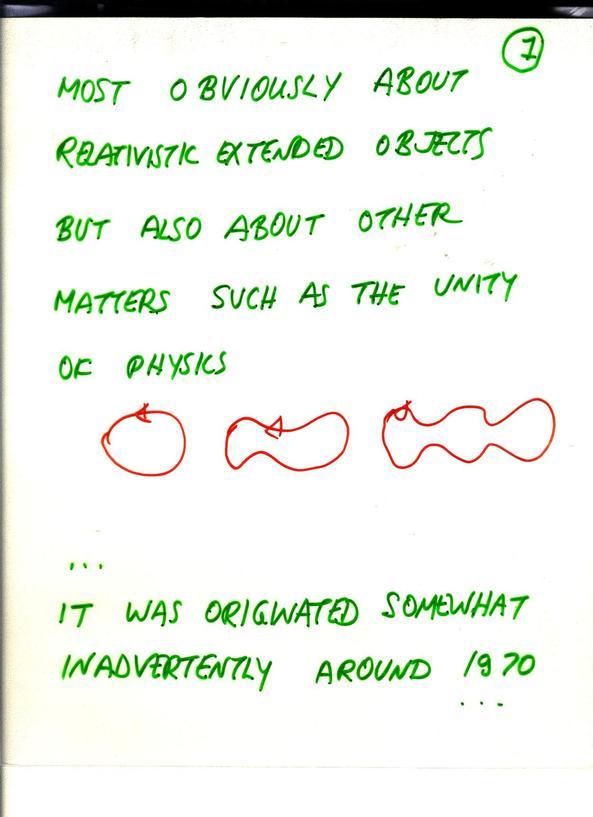 1
MOST OBVIOUSLY ABOUT
RELATIVISTIC EXTENDED OBJECTS
BUT ALSO ABOUT OTHER
MATTERS SUCH AS THE UNITY
OF PHYSICS
...
IT WAS ORIGINATED SOMEWHAT
INADVERTENTLY AROUND 1970
...